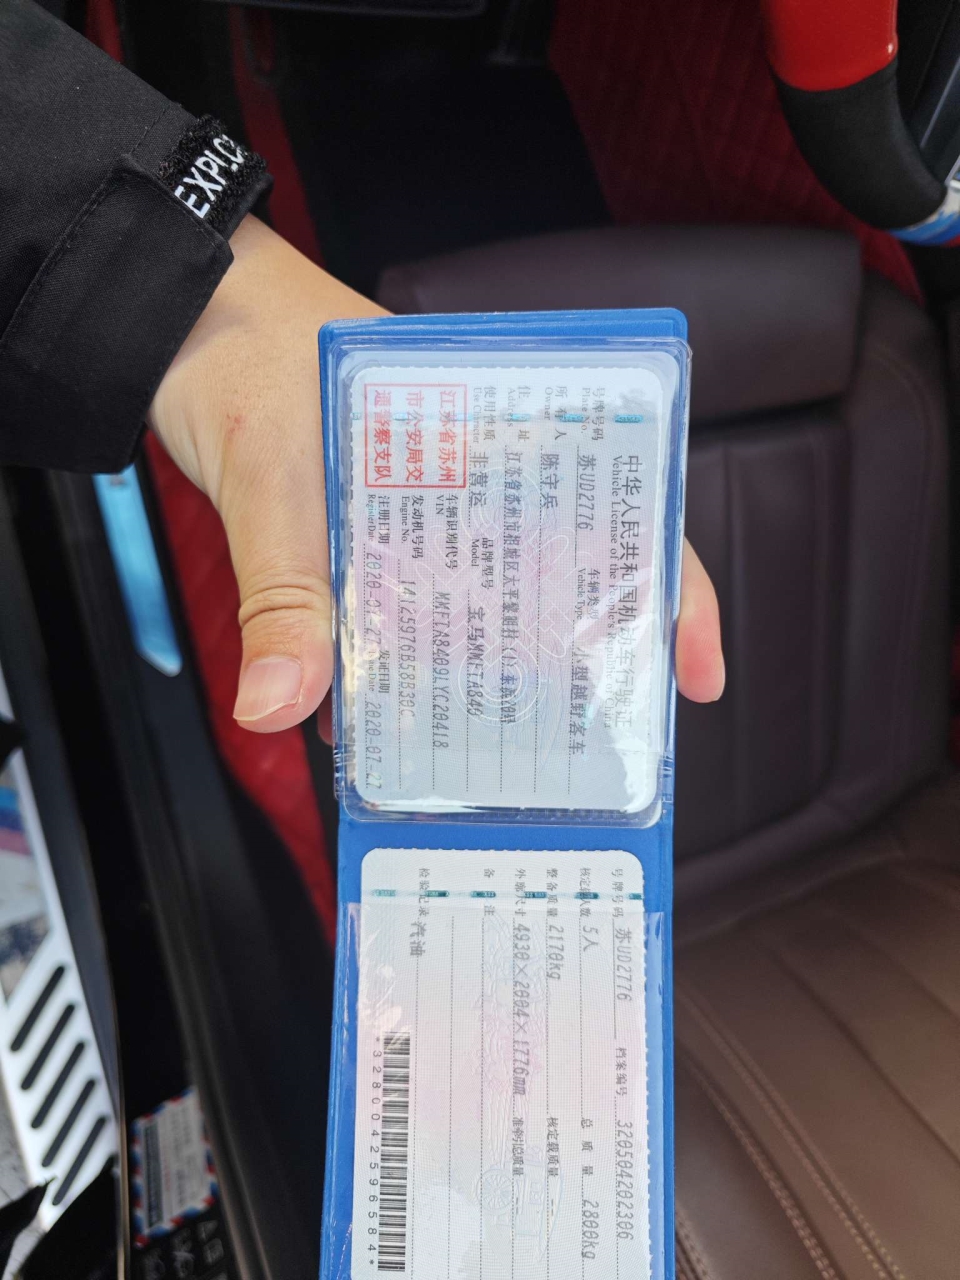 EXPLO
中华人民共和国机动车行驶证
Vehicle License of the People's Republic of China
号牌号码 苏UD2776 车辆类型 小型越野客车
Plate No. Vehicle Type
所有人 陈守兵
Owner
住址 江苏省苏州市相城区太平黎明村(1)东浜20号
Address
使用性质 非营运 品牌型号 宝马MMFTA840
Use Character Model
江苏省苏州
市公安局交
通警察支队
车辆识别代号 MMFTA8409LYC20418
VIN
发动机号码 14125976B58B30C
Engine No.
注册日期 2020-07-27 发证日期 2020-07-27
Register Date Issue Date
号牌号码 苏UD2776 档案编号 320504202306
核定载人数 5人 总质量 2800kg
整备质量 2170kg 核定载质量 --
外廓尺寸 4930×2004×1776mm 准牵引总质量 --
备注
检验记录 汽油
*3280042596584*